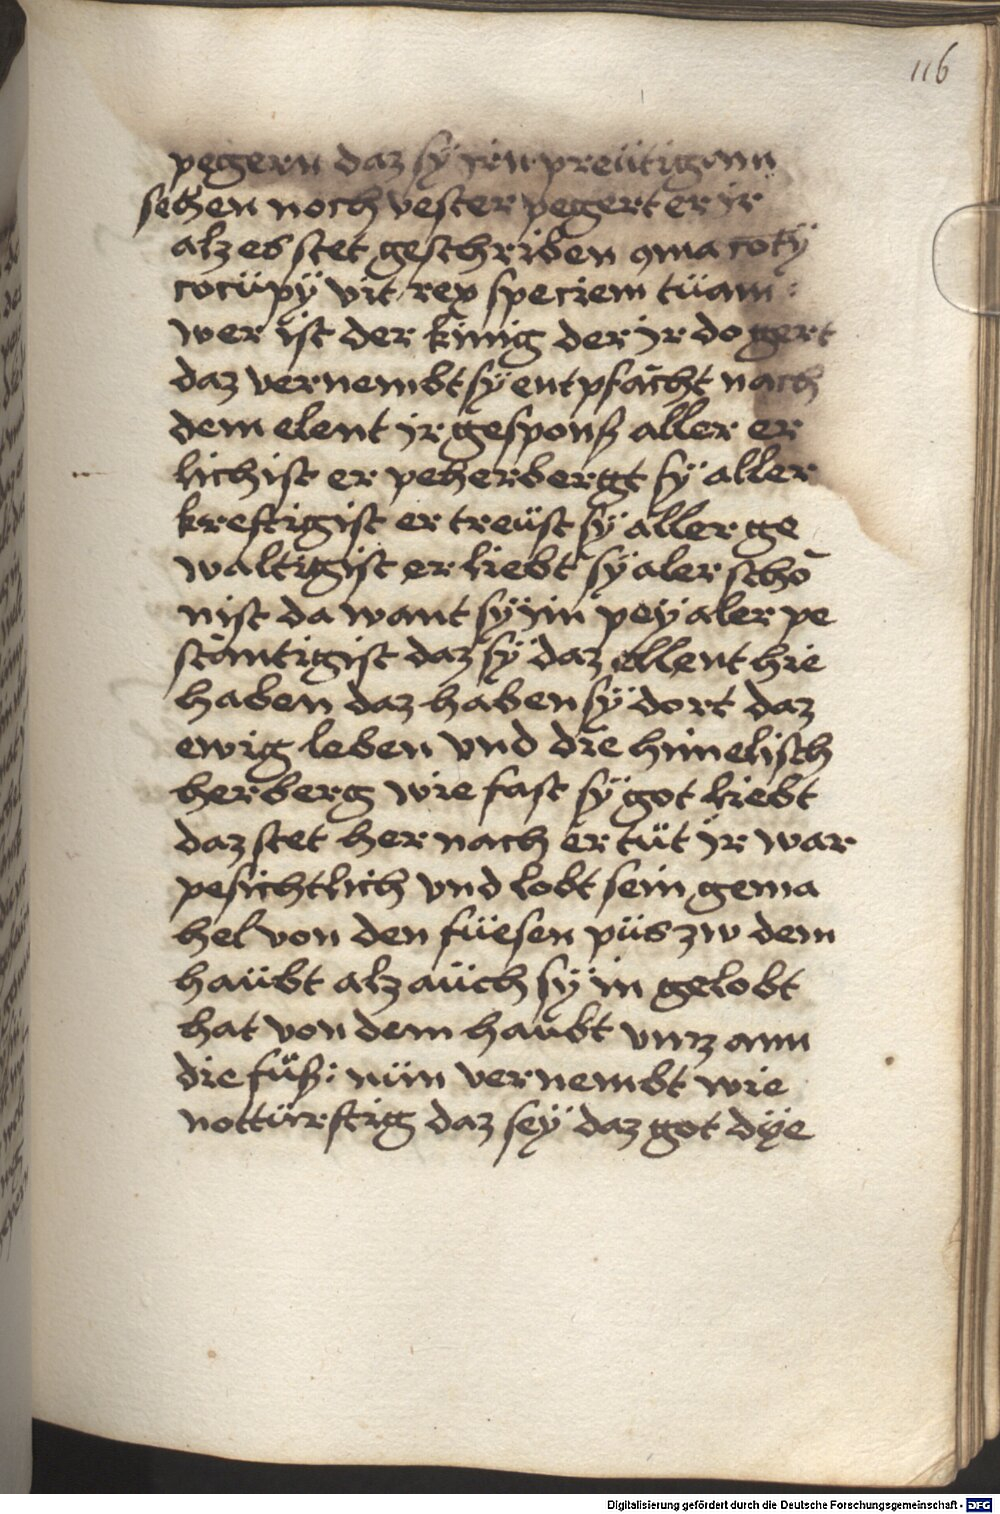 116
pegern daz sÿ jrn preütigann
sehen noch vester pegert er ir
alz es stet geschriben qma coty
cocüpÿ vit rex speciem tüam :
wer ist der kinig der jr do gert
daz vernembt sÿ entpfächt nach
dem elent jr gesponß aller er
lichist er peherbergt sÿ aller
kreftigist er treüst sÿ aller ge
waltigist er liebt sÿ aler schö
nist da want sÿ jm peÿ aler pe
stäntigist daz sÿ daz ellent hie
haben daz haben sÿ dort daz
ewig leben vnd die himelisch
herberg wie fast sÿ got liebt
daz stet her nach er tüt jr war
pesichtlich vnd lobt sein gema
hel von den füesen püs zw dem
haübt alz aüch sÿ in gelobt
hat von dem haübt vnz ann
die füß : nün vernembt wie
nottürftig daz seÿ daz got dÿe
Digitalisierung gefördert durch die Deutsche Forschungsgemeinschaft - DFG